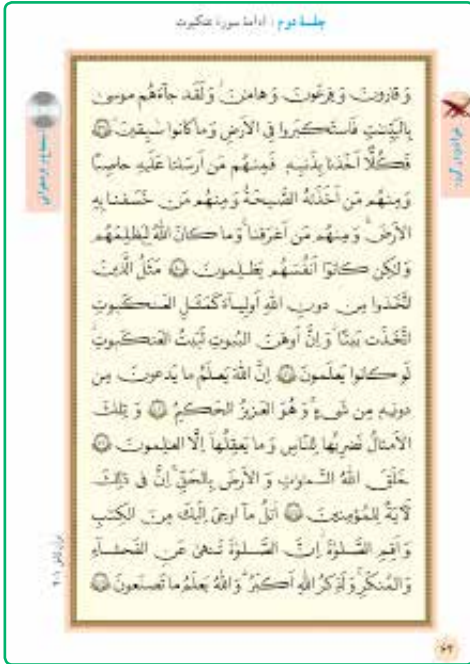 جلسهٔ دوم : ادامهٔ سورهٔ عنکبوت
وَ قارونَ وَ فِرعَونَ وَ هامانَ وَ لَقَد جآءَهُم موسىٰ
بِالبَيِّنٰتِ فَاستَكبَروا فِى الاَرضِ وَ ما كانوا سٰبِقينَ ﴿۳۹﴾
فَكُلًّا اَخَذنا بِذَنبِهٖ فَمِنهُم مَن اَرسَلنا عَلَيهِ حاصِبًا
وَ مِنهُم مَن اَخَذَتهُ الصَّيحَةُ وَ مِنهُم مَن خَسَفنا بِهِ
الاَرضَ وَ مِنهُم مَن اَغرَقنا وَ ما كانَ اللّٰهُ لِيَظلِمَهُم
وَ لٰكِن كانوٓا اَنفُسَهُم يَظلِمونَ ﴿۴۰﴾ مَثَلُ الَّذينَ
اتَّخَذوا مِن دونِ اللّٰهِ اَولِيآءَ كَمَثَلِ العَنكَبوتِ
اتَّخَذَت بَيتًا وَ اِنَّ اَوهَنَ البُيوتِ لَبَيتُ العَنكَبوتِ
لَو كانوا يَعلَمونَ ﴿۴۱﴾ اِنَّ اللّٰهَ يَعلَمُ ما يَدعونَ مِن
دونِهٖ مِن شَىءٍ وَ هُوَ العَزيزُ الحَكيمُ ﴿۴۲﴾ وَ تِلكَ
الاَمثالُ نَضرِبُها لِلنّاسِ وَ ما يَعقِلُهآ اِلَّا العٰلِمونَ ﴿۴۳﴾
خَلَقَ اللّٰهُ السَّماواتِ وَ الاَرضَ بِالحَقِّ اِنَّ فى ذٰلِكَ
لَآيَةً لِلمُؤمِنينَ ﴿۴۴﴾ اُتلُ مآ اوحِىَ اِلَيكَ مِنَ الكِتٰبِ
وَ اَقِمِ الصَّلوٰةَ اِنَّ الصَّلوٰةَ تَنهىٰ عَنِ الفَحشآءِ
وَ المُنكَرِ وَ لَذِكرُ اللّٰهِ اَكبَرُ وَ اللّٰهُ يَعلَمُ ما تَصنَعونَ ﴿۴۵﴾
۶۲